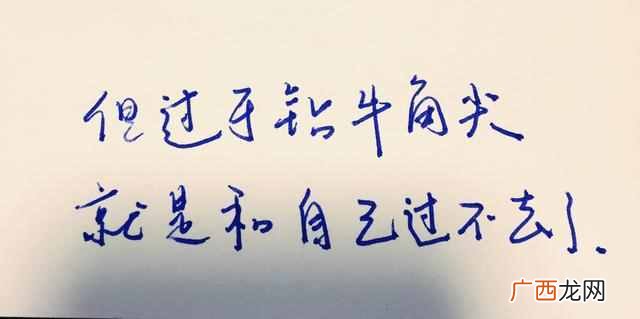 但过于钻牛角尖
就是和自己过不去了.
广西龙网